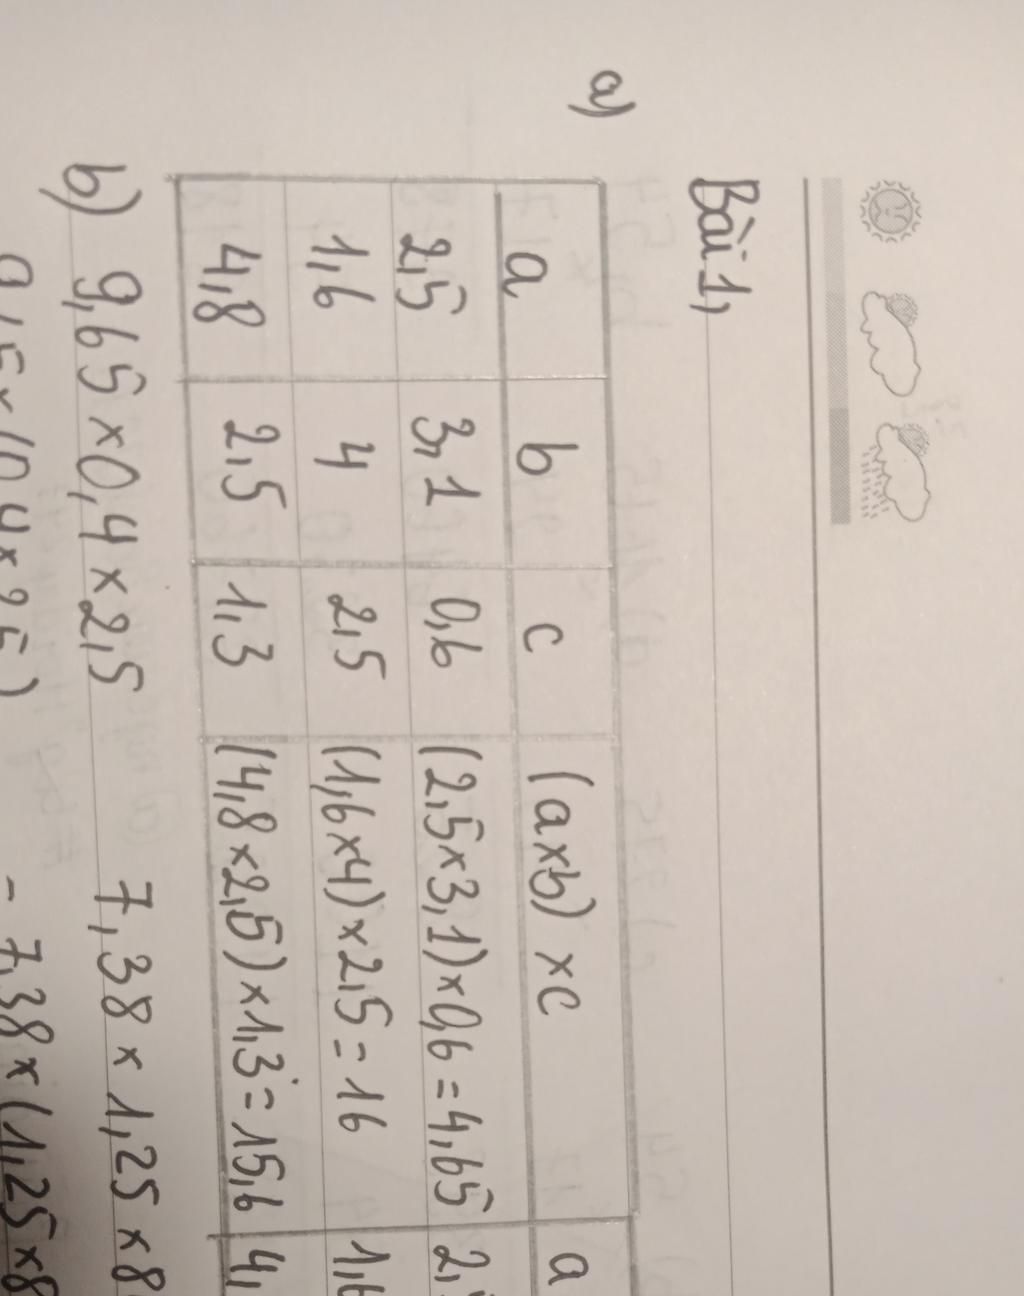 Bài 1,
a)
a b c (a×b) ×c a
2,5 3,1 0,6 (2,5×3,1)×0,6 = 4,65 2,
1,6 4 2,5 (1,6×4)×2,5 = 16 1,6
4,8 2,5 1,3 (4,8×2,5)×1,3 = 15,6 4,
b) 9,65 ×0,4 × 2,5 7,38 × 1,25 × 8
= 7,38 × (1,25×8